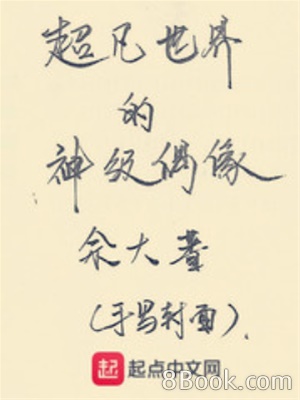 超凡世界
的
神级偶像
佘大薯
(手写封面)
起 起点中文网
8Book.com